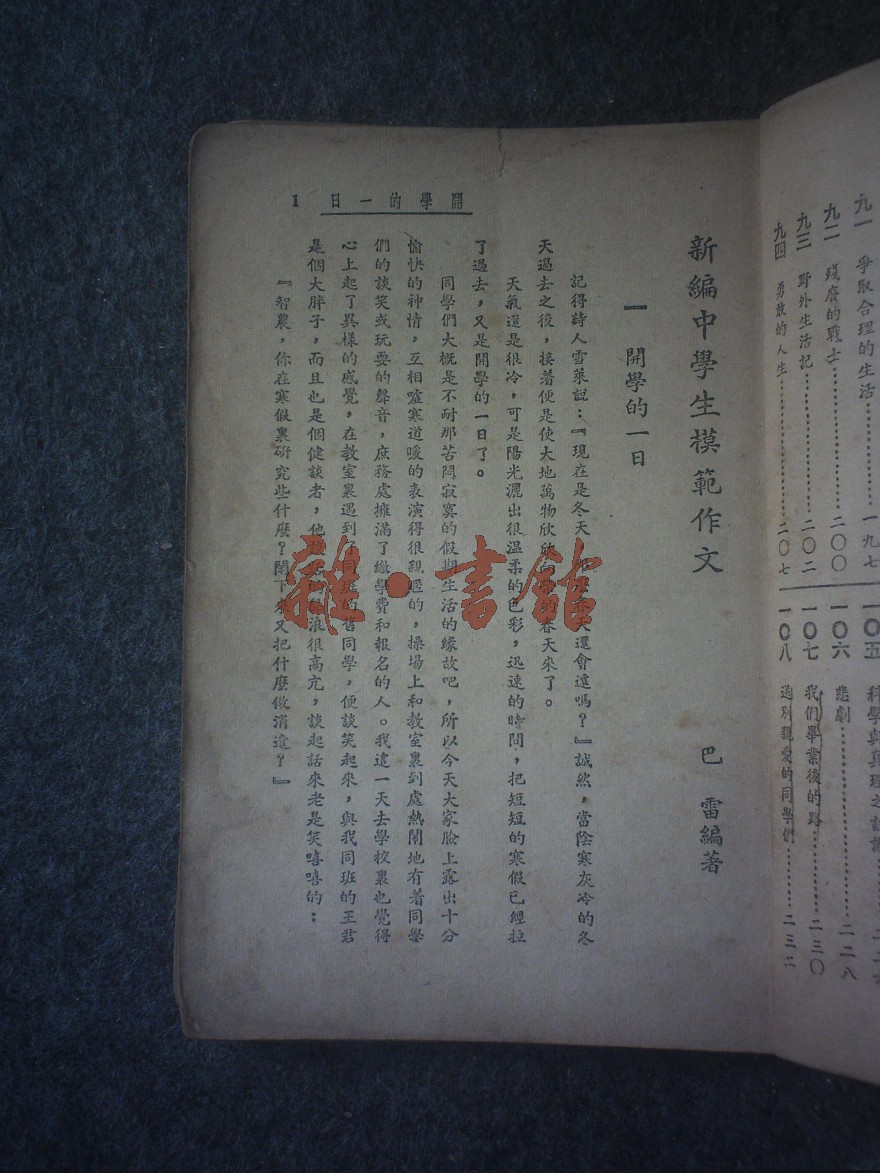 九一 爭取合理的生活……一九七
九二 殘廢的戰士……二〇〇
九三 野外生活記……二〇二
九四 勇敢的人生……二〇七
一〇五 科學與真理之
一〇六 悲劇……二二八
一〇七 我們畢業後的路……二三〇
一〇八 送別親愛的同學們……二三二
開學的一日 1
新編中學生模範作文
巴 雷編著
一 開學的一日
記得詩人雪萊說：『現在是冬天，天還會遠嗎？』誠然，當陰寒灰冷的冬
天過去之後，接着便是使大地萬物欣欣向榮的春天來了。
天氣還是很冷，可是陽光灑出很溫柔的色彩，迅速的時間，把短短的寒假已經拉
了過去，又是開學的一日了。
同學們大概是不耐那苦悶寂寞的假期生活的緣故吧，所以今天大家臉上露出十分
愉快的神情，互相噓寒道暖的表演得很親暱的，操場上和教室裏到處熱鬧地有着同學
們的談笑或玩耍的聲音，庶務處擁滿了繳學費和報名的人。我這一天去學校裏也覺得
心上起了異樣的感覺，在教室裏遇到了同班的舊同學，便談笑起來，與我同班的王君
是個大胖子，而且也是個健談者，他的浪很高亢，談起話來老是笑嘻嘻的：
『智農，你在寒假裏研究些什麼？閒下來又把什麼做消遣？』
雜·書館